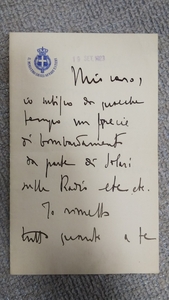 Mio caro,
io subisco da qualche
tempo una specie
di bombardamento
da parte di Solari
sulla Radio etc etc.
Io rimetto
tutto quanto a te